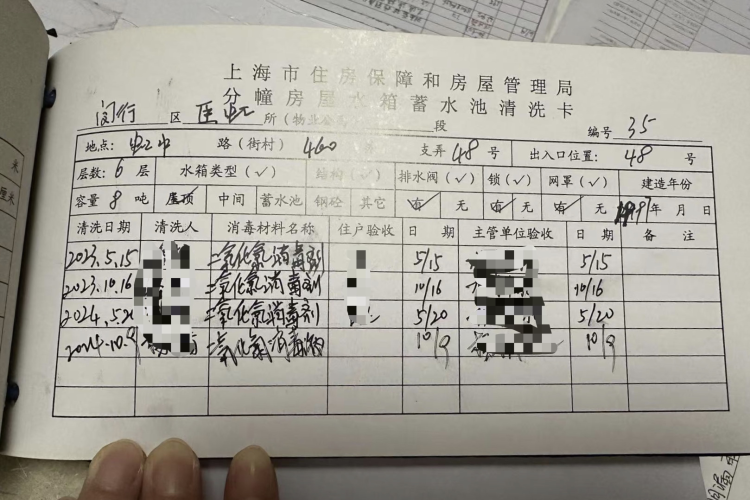 上海市住房保障和房屋管理局
分幢房屋水箱蓄水池清洗卡
闵行 区 所(物业公司 段 编号 35
地点: 路(街村) 460 支弄 48 号 出入口位置: 48 号
层数: 6 层 水箱类型(✓) 结构(✓) 排水阀(✓) 锁(✓) 网罩(✓) 建造年份
容量 8 吨 屋顶 中间 蓄水池 钢砼 其它 有 无 有 无 有 无 1997年 月 日
清洗日期 清洗人 消毒材料名称 住户验收 日期 主管单位验收 日期 备注
2023.5.15 二氧化氯消毒剂 5/15 5/15
2023.10.16 二氧化氯消毒剂 10/16 10/16
2024.5.20 二氧化氯消毒剂 5/20 5/20
2024.10.9 二氧化氯消毒 10/9 10/9